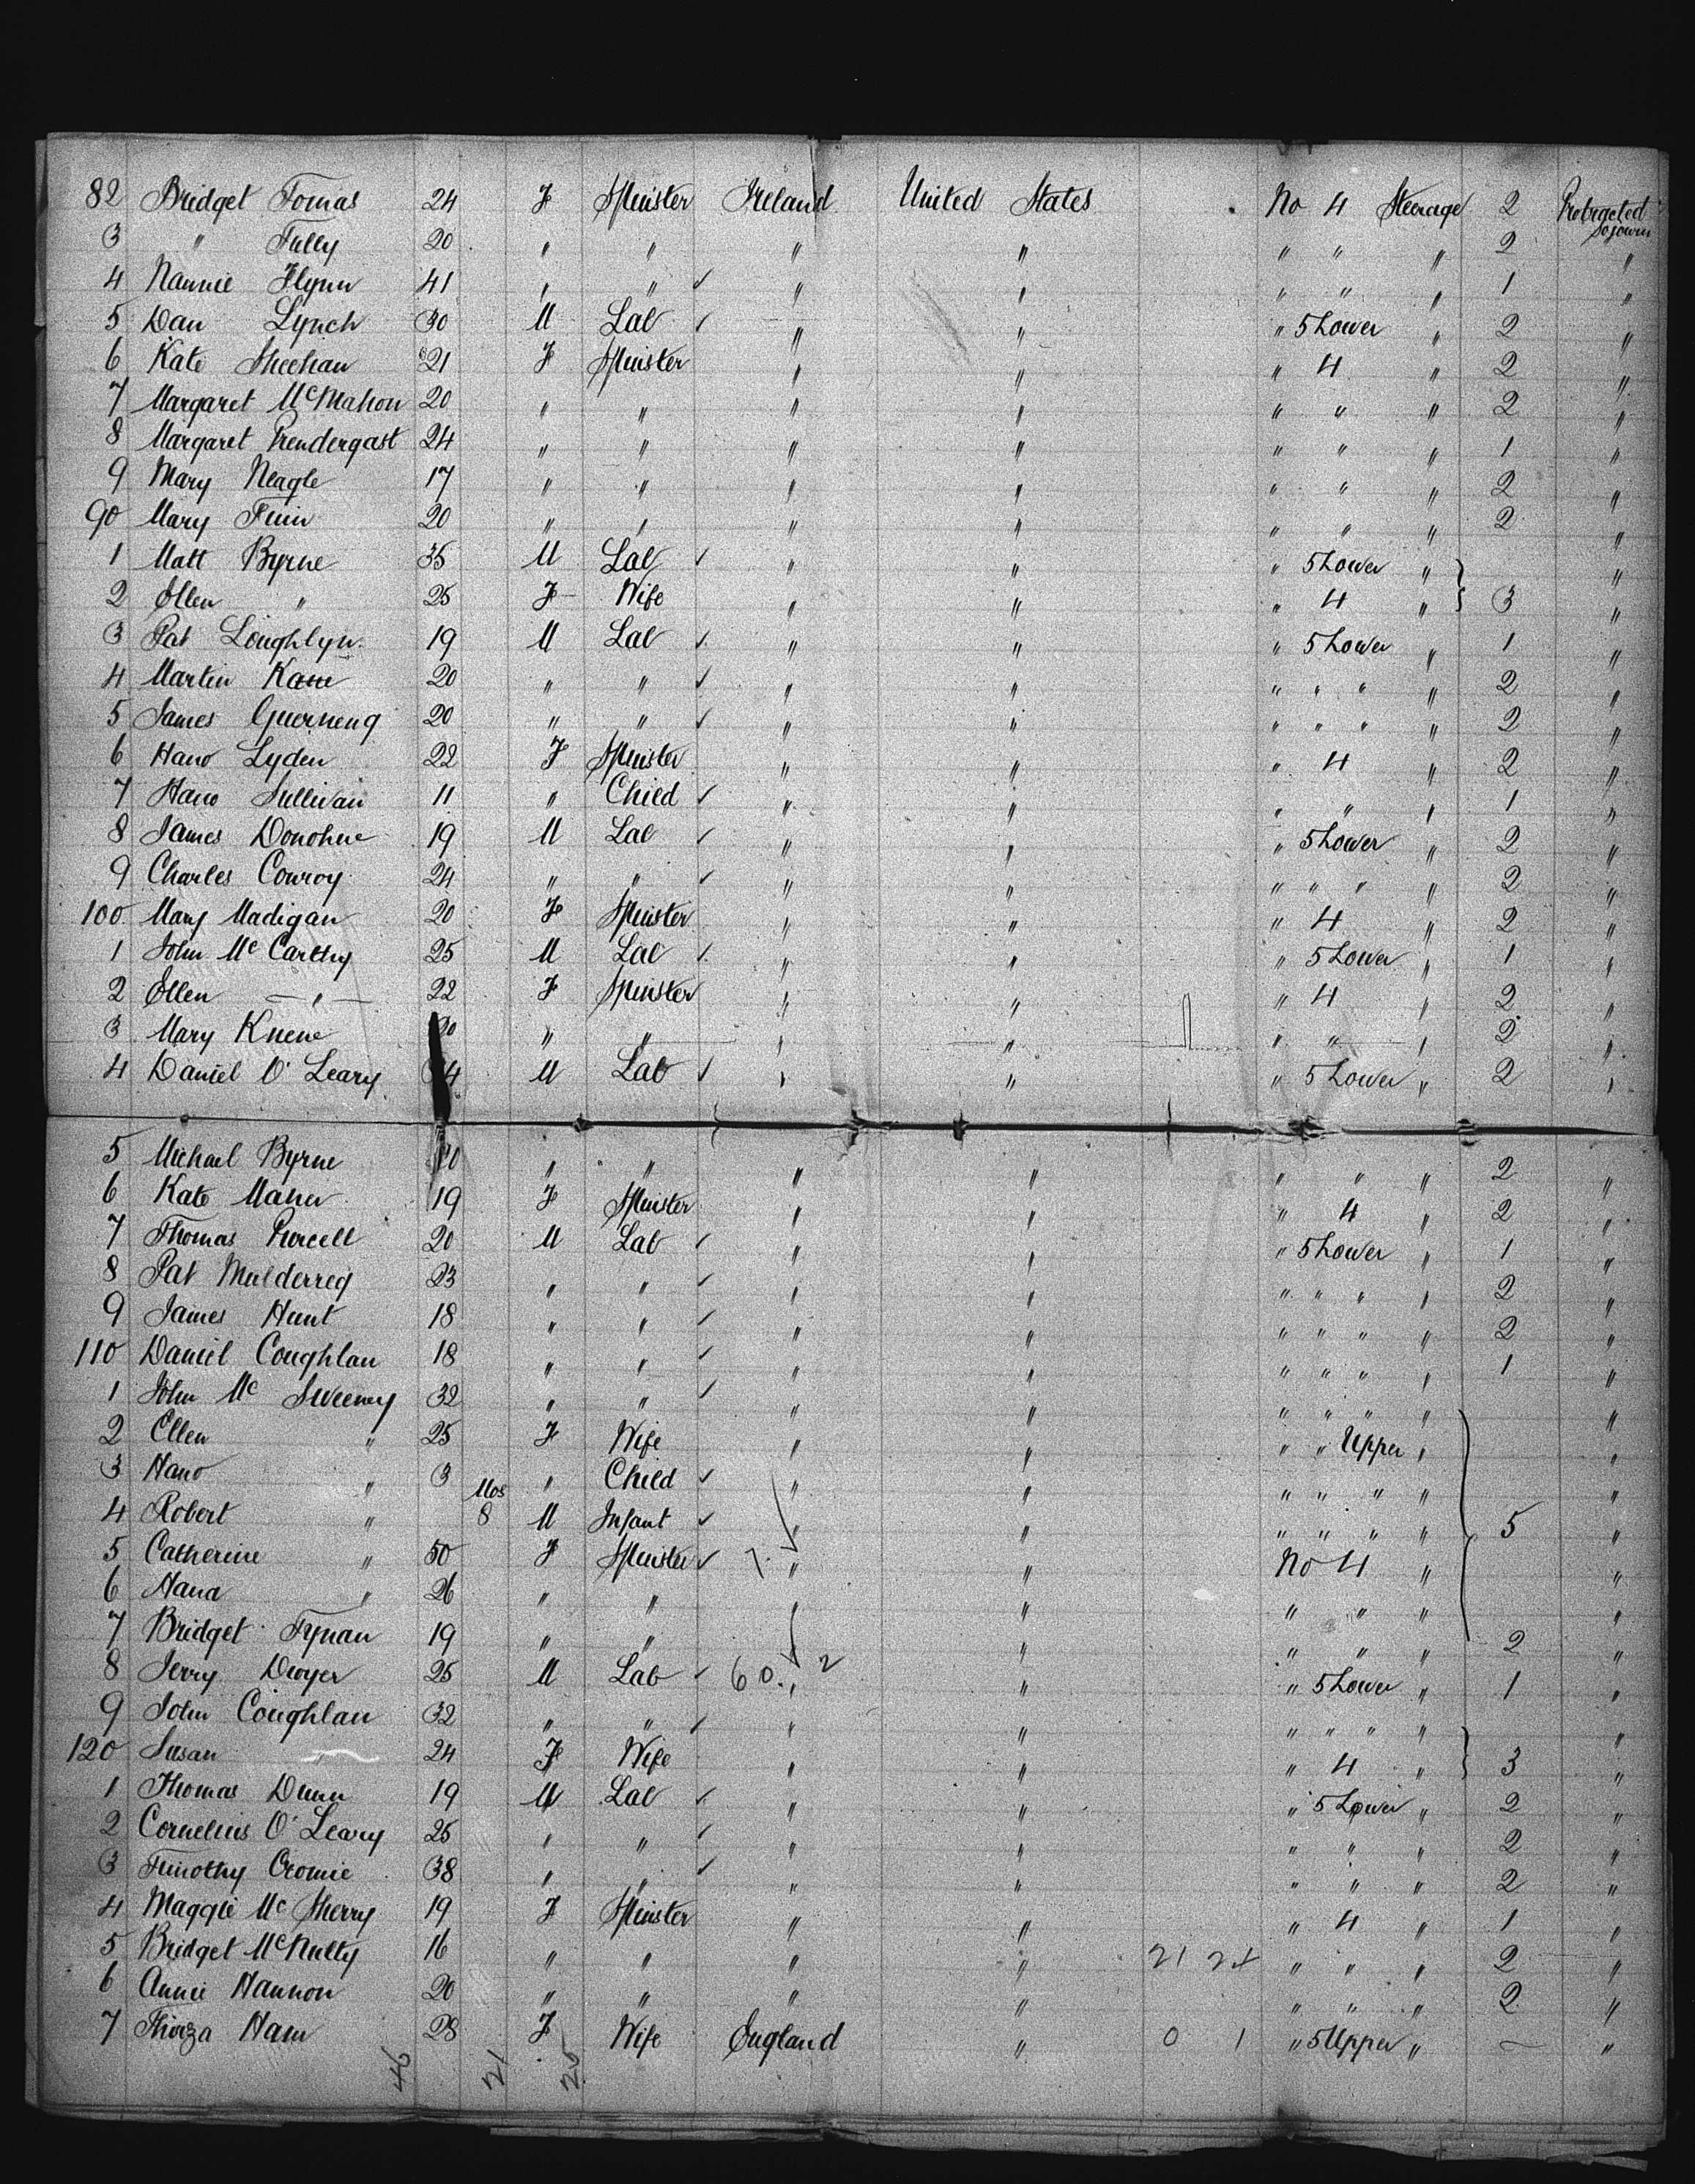 82 Bridget Tomas 24 F Spinster Ireland United States No 4 Steerage 2 Protracted Sojourn
3 " Tully 20 " " " " " " " 2 "
4 Nannie Flynn 41 " " " " " " " 1 "
5 Dan Lynch 30 M Lab " " " 5 Lower " 2 "
6 Kate Sheehan 21 F Spinster " " " 4 " 2 "
7 Margaret McMahon 20 " " " " " " " 2 "
8 Margaret Prendergast 24 " " " " " " " 1 "
9 Mary Neagle 17 " " " " " " " 2 "
90 Mary Finn 20 " " " " " " " 2 "
1 Matt Byrne 35 M Lab " " " 5 Lower " "
2 Ellen " 25 F Wife " " " 4 " 3 "
3 Pat Loughlyn 19 M Lab " " " 5 Lower " 1 "
4 Martin Kane 20 " " " " " " " " 2 "
5 James Guerneng 20 " " " " " " " " 2 "
6 Hano Lyden 22 F Spinster " " " 4 " 2 "
7 Hano Sullivan 11 " Child " " " " " 1 "
8 James Donohue 19 M Lab " " " 5 Lower " 2 "
9 Charles Conroy 24 " " " " " " " " 2 "
100 Mary Madigan 20 F Spinster " " " 4 " 2 "
1 John McCarthy 25 M Lab " " " 5 Lower " 1 "
2 Ellen " 22 F Spinster " " " 4 " 2 "
3 Mary Knene 20 " " " " " " " 2 "
4 Daniel O'Leary M Lab " " " 5 Lower " 2 "
5 Michael Byrne " " " " " " " 2 "
6 Kate Maher 19 F Spinster " " " 4 " 2 "
7 Thomas Purcell 20 M Lab " " " 5 Lower " 1 "
8 Pat Mulderreg 23 " " " " " " " " 2 "
9 James Hunt 18 " " " " " " " " 2 "
110 Daniel Coughlan 18 " " " " " " " " 1 "
1 John McSweeney 32 " " " " " " " " "
2 Ellen " 25 F Wife " " " " Upper " "
3 Hano " 3 " Child " " " " " " "
4 Robert " Mos 8 M Infant " " " " " " 5 "
5 Catherine " 50 F Spinster 7. " " No 4 " "
6 Hana " 26 " " " " " " " "
7 Bridget Tynan 19 " " " " " " " 2 "
8 Jerry Dwyer 25 M Lab 60. 2 " " " 5 Lower " 1 "
9 John Coughlan 32 " " " " " " " " "
120 Susan " 24 F Wife " " " 4 " 3 "
1 Thomas Dunn 19 M Lab " " " 5 Lower " 2 "
2 Cornelius O'Leary 25 " " " " " " " 2 "
3 Timothy Cromie 38 " " " " " " " 2 "
4 Maggie McSherry 19 F Spinster " " " 4 " 1 "
5 Bridget McNulty 16 " " " " 21 24 " " " 2 "
6 Annie Hannon 20 " " " " " " " 2 "
7 Thirza Ham 28 F Wife England " 0 1 " 5 Upper " — "
46 21 25